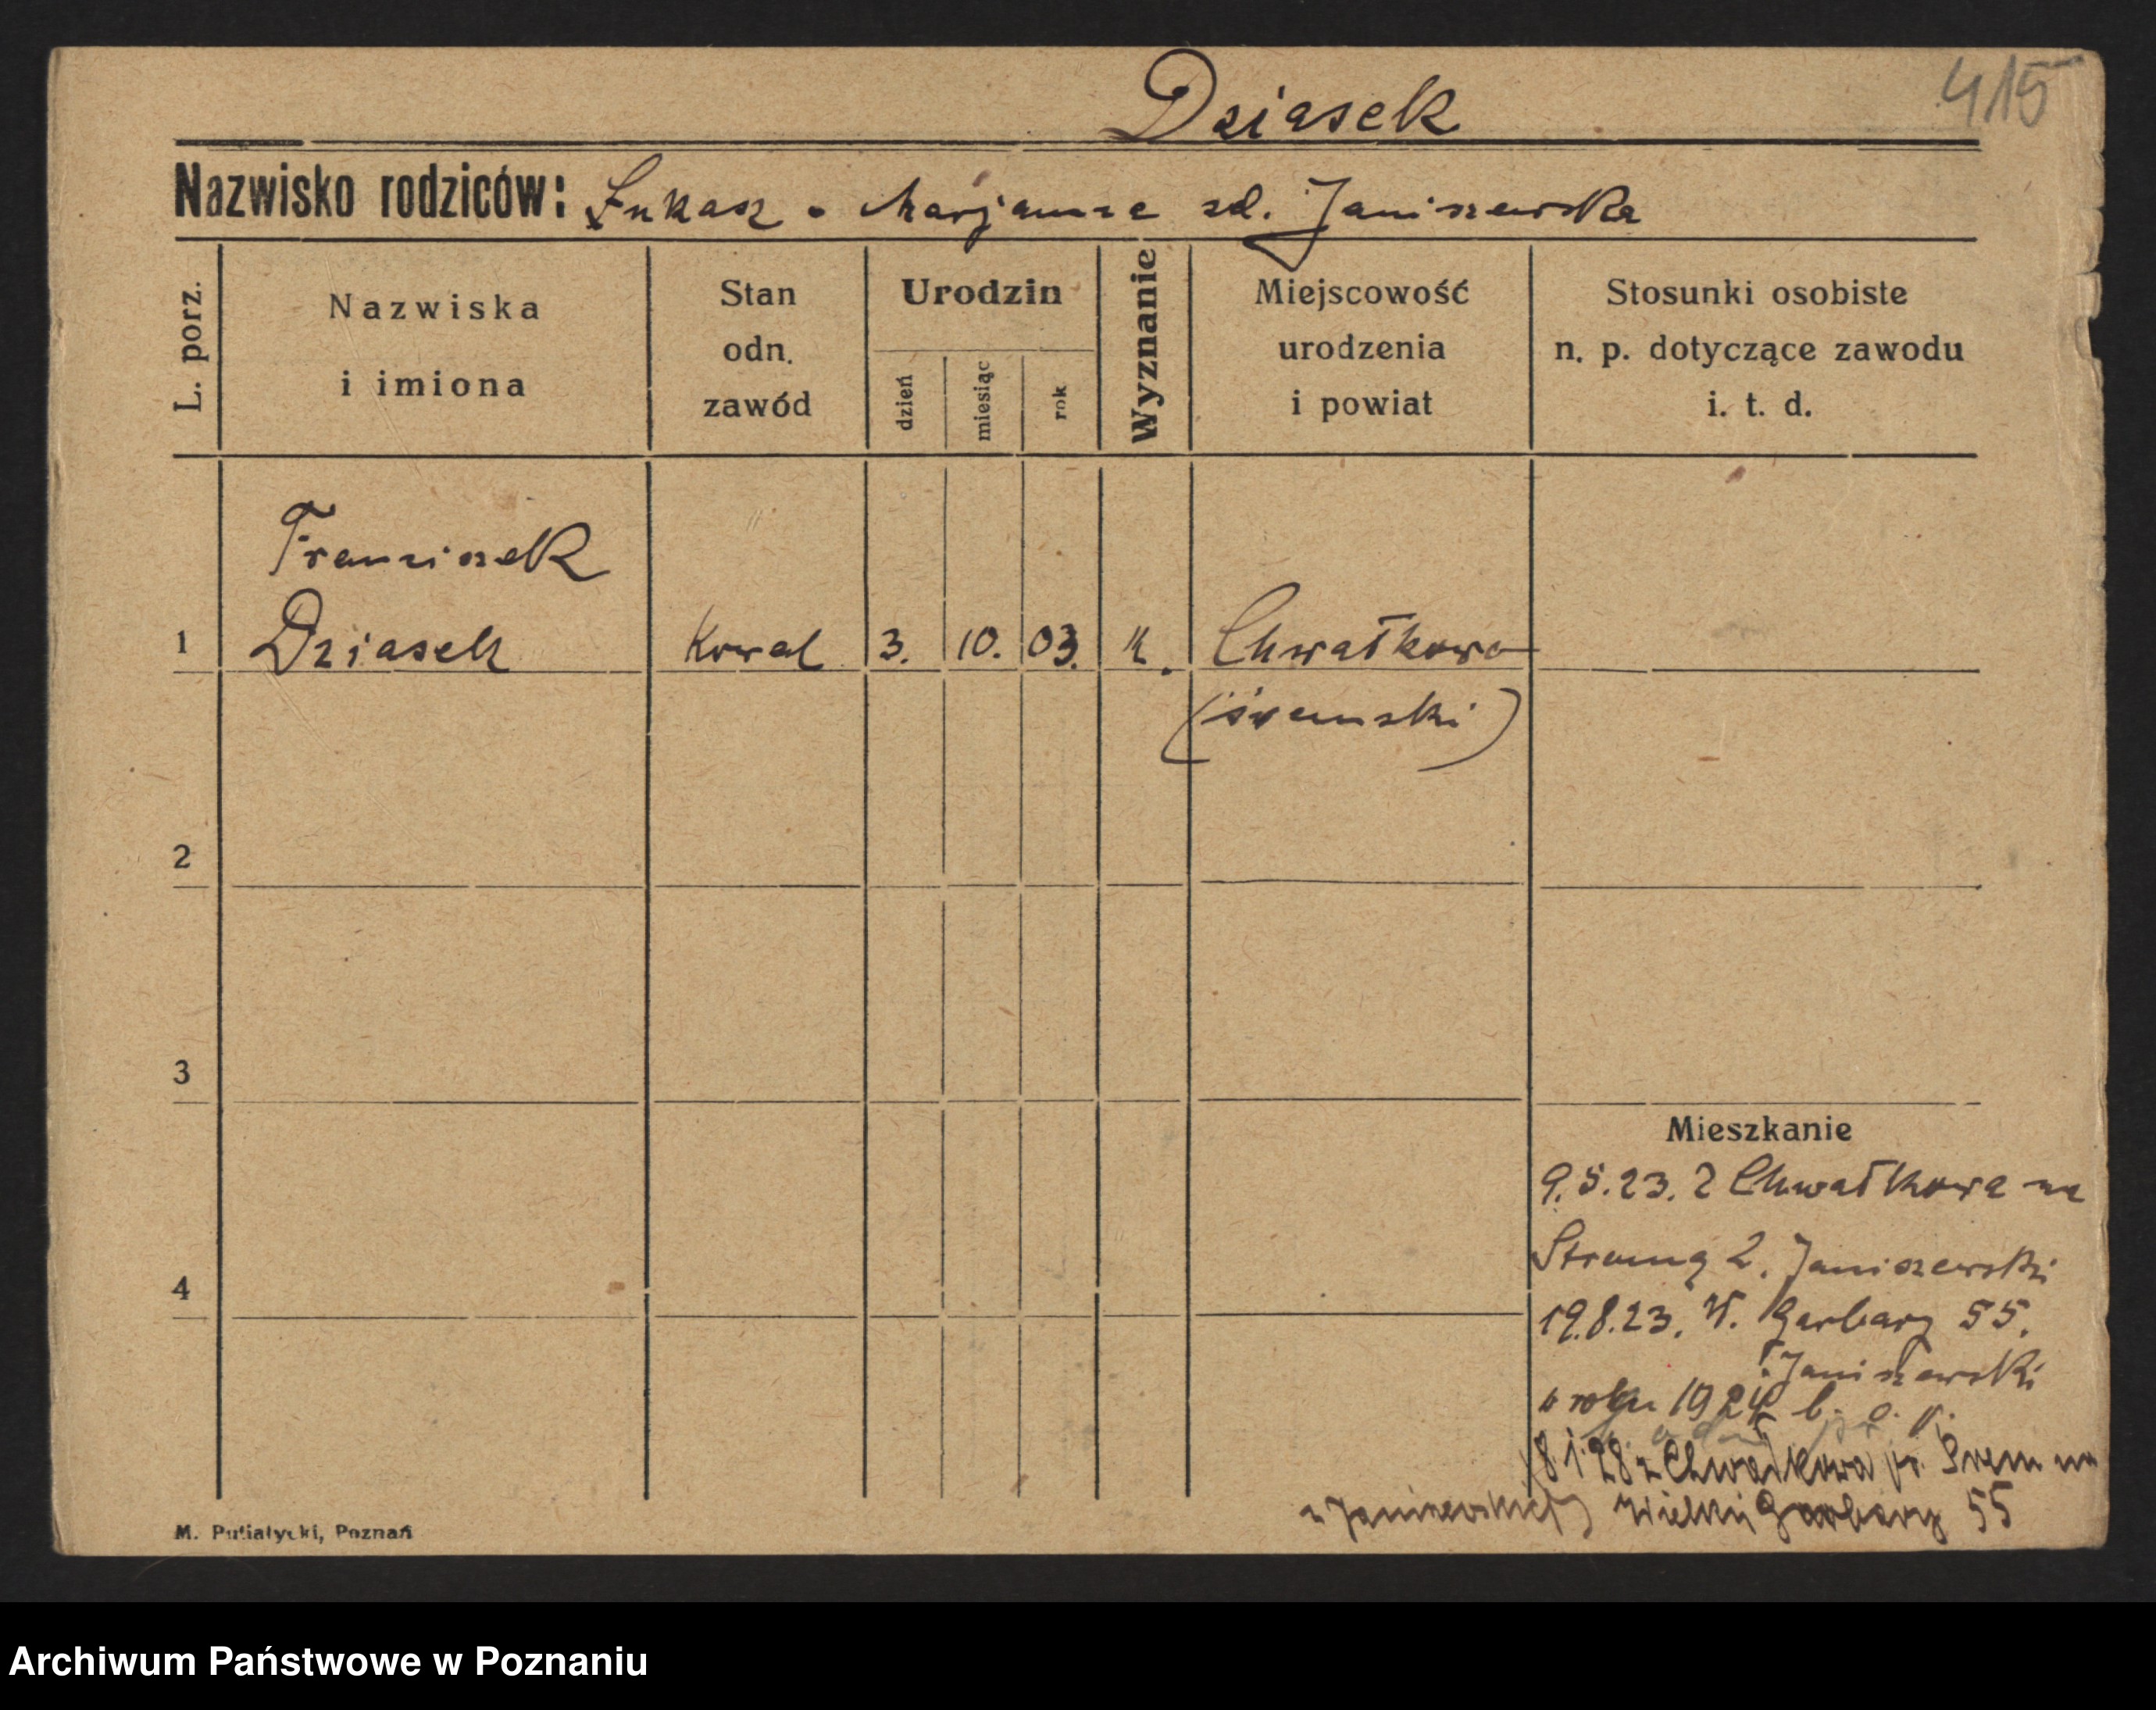 Dziasek
415
Nazwisko rodziców: Łukasz - Marjanna zd. Janiszewska
L. porz.
Nazwiska
i imiona
Stan
odn.
zawód
Urodzin
dzień
miesiąc
rok
Wyznanie
Miejscowość
urodzenia
i powiat
Stosunki osobiste
n. p. dotyczące zawodu
i. t. d.
Franciszek
1 Dziasek Kowal 3. 10. 03. k. Chwałkowo
(śremski)
2
3
4
Mieszkanie
9.5.23. z Chwałkowa na
Stromą 2. Janiszewski
19.8.23. W. Garbary 55.
Janiszewski
w roku 1924 b. o. p.
8 1 28 z Chwałkowa p. Śrem na
u Janiszewskich Wielkie Garbary 55
M. Putiatycki, Poznań
Archiwum Państwowe w Poznaniu